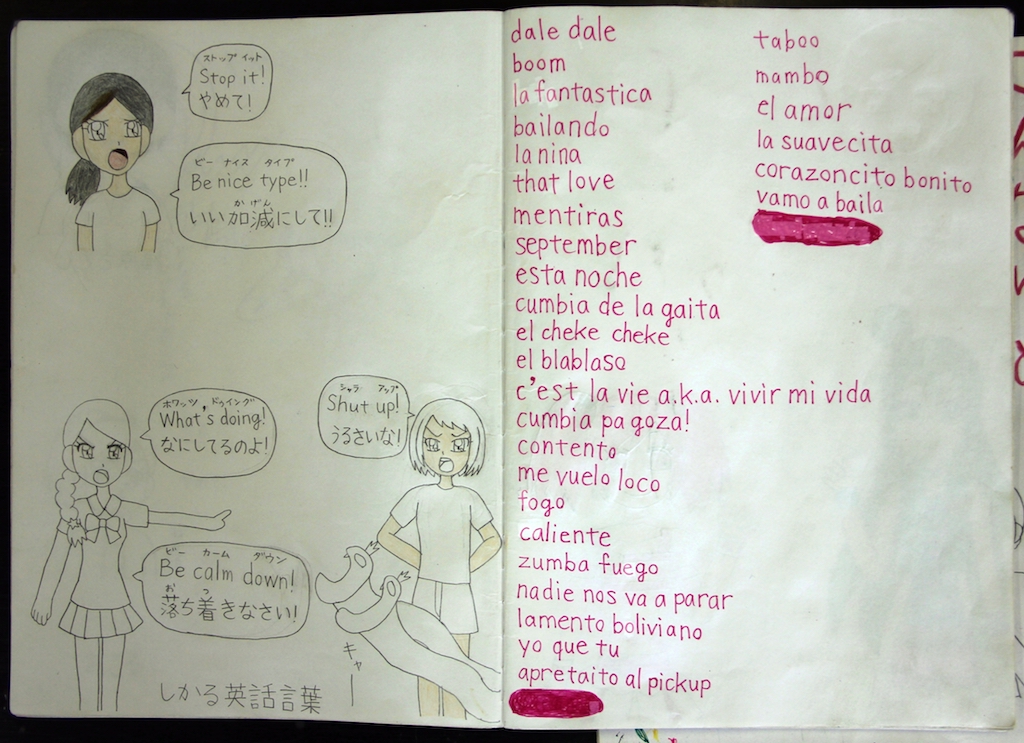 ストップ イット
Stop it!
やめて!
ビー ナイス タイプ
Be nice type!!
かげん
いい加減にして!!
ホワッツ ドゥイング
What's doing!
なにしてるのよ!
シャラ アップ
Shut up!
うるさいな!
ビー カーム ダウン
Be calm down!
お つ
落ち着きなさい!
キャー
しかる英話言葉
dale dale
boom
la fantastica
bailando
la nina
that love
mentiras
september
esta noche
cumbia de la gaita
el cheke cheke
el blablaso
c'est la vie a.k.a. vivir mi vida
cumbia pa goza!
contento
me vuelo loco
fogo
caliente
zumba fuego
nadie nos va a parar
lamento boliviano
yo que tu
apretaito al pickup
taboo
mambo
el amor
la suavecita
corazoncito bonito
vamo a baila